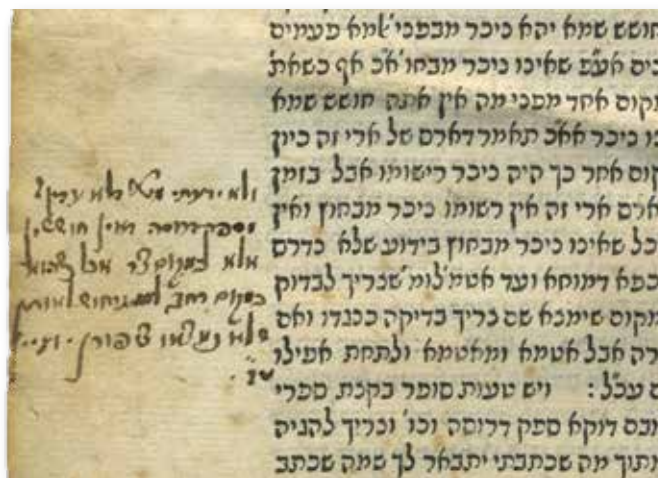 חושש שמא יהא ניכר מבפני' אמא פעמים
בים אע"פ שאינו ניכר מבחו' א"כ אף כשאת'
מקום אחד מפני מה אין אתה חושש שמא
נו ניכר אא"כ תאמר דארס של ארי זה כיון
קום אחר כך היה ניכר רישומו אבל בזמן
ארס ארי זה אין רשומו ניכר מבחוץ ואין
כל שאינו ניכר מבחוץ בידוע שלא נדרס
בפא דמוחא ועד אטמ' לומ' שצריך לבדוק
מקום שימצא שם צריך בדיקה כנגדו ואם
רה אבל אטמא ומאטמא ולתחת אפילו
ם עכ"ל : ויש טעות סופר בקצת ספרי
ובם דוקא ספק דרוסה וכו' וצריך להגיה
מתוך מה שכתבתי יתבאר לך שמה שכתב
ולא ידעתי
וספק דרוסה ואין חוששין
אלא במקום צר אבל
במקום רחב
שלא נמצאו צפורן